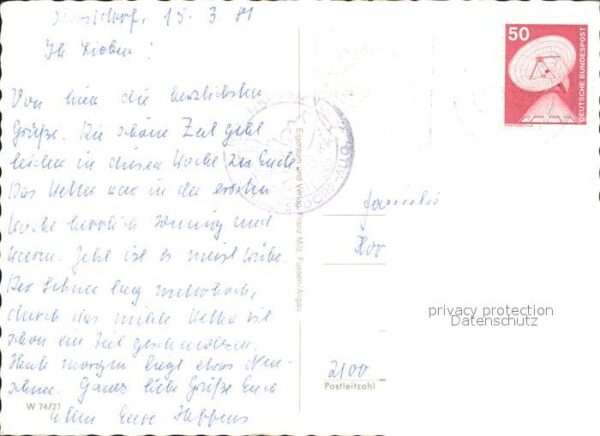 15. 3. 81
Ihr Lieben!
Von hier die herzlichsten
Grüße. Die schöne Zeit geht
leider in dieser Woche zu Ende.
Das Wetter war in der ersten
Woche herrlich sonnig und
warm. Jetzt ist es meist trübe.
Der Schnee lag meterhoch,
durch das milde Wetter ist
schon ein Teil geschmolzen.
Heute morgen liegt etwas Neu-
schnee. Ganz liebe Grüße Euch
allen Eure
W 74/27
Eigentum und Verlag Franz Milz, Füssen-Allgäu
50
DEUTSCHE BUNDESPOST
Familie
privacy protection
Datenschutz
2100
Postleitzahl